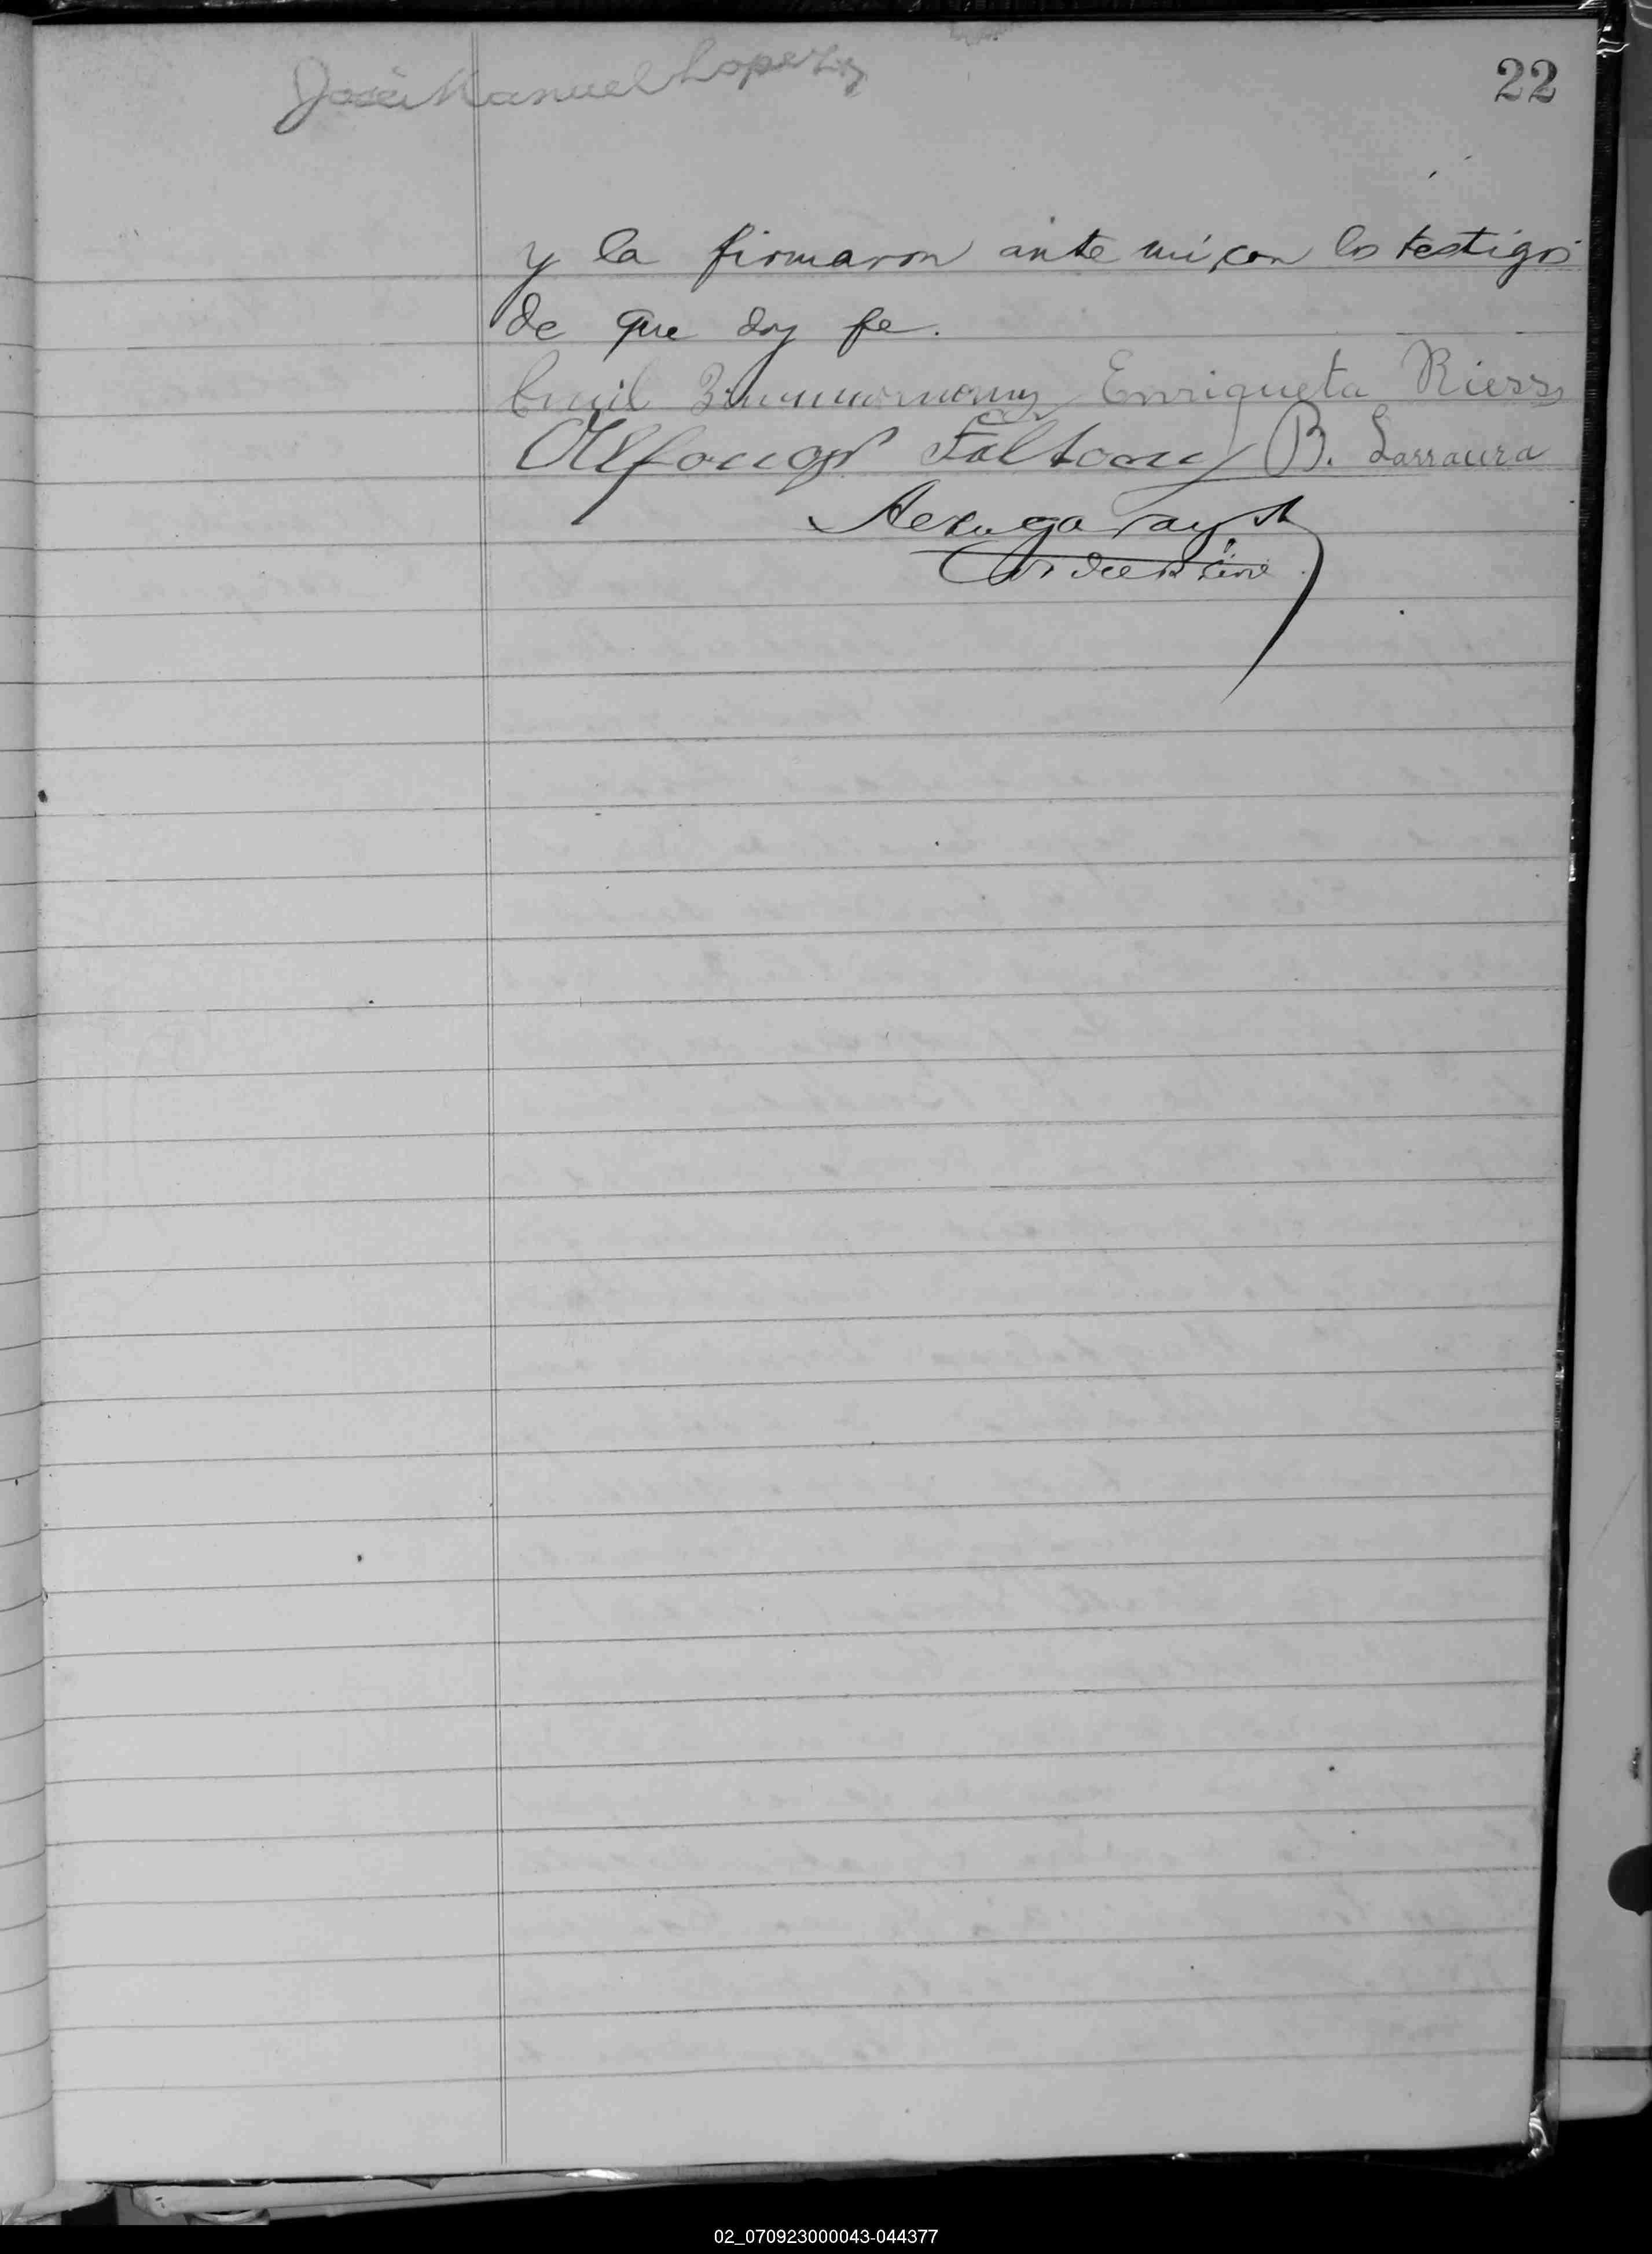 José Manuel Lopez
22
y la firmaron ante mí, con los testigos
de que doy fe.
Emil Zimmermann Enriqueta Riess
Alfonso B. Larraura
02_070923000043-044377